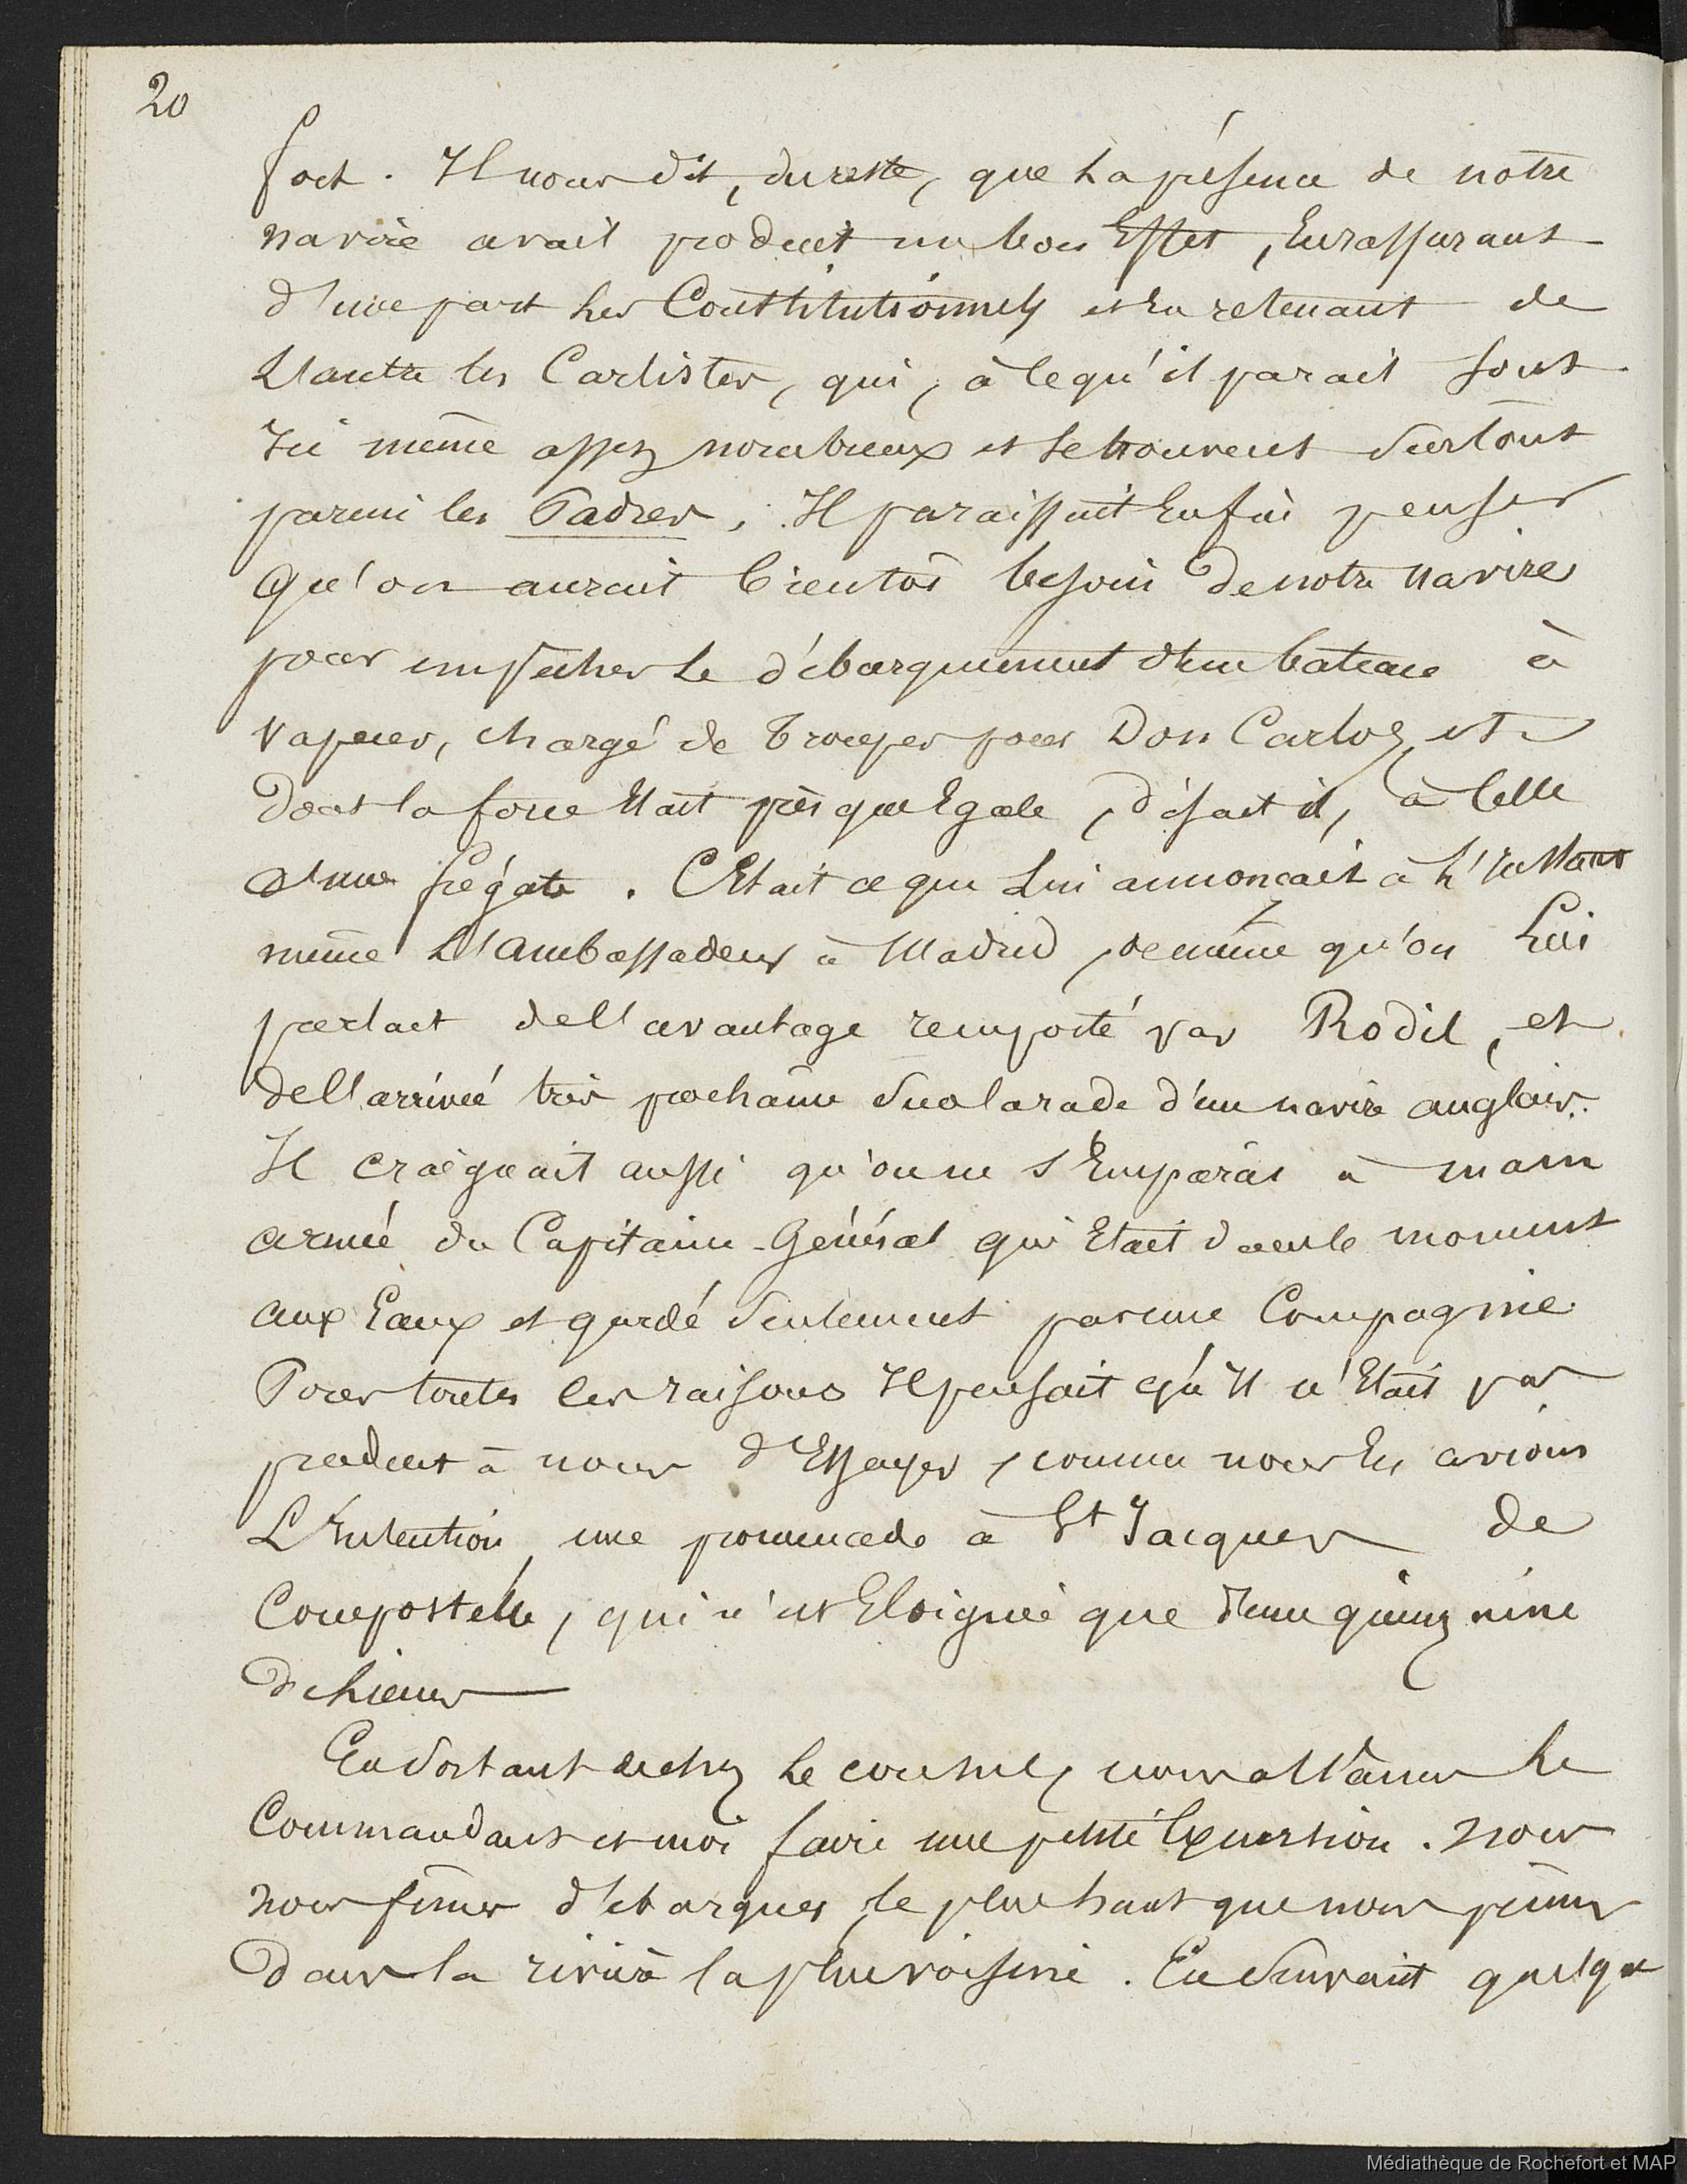 20
fort. Il nous dit, du reste, que la présence de notre
navire avait produit un bon Effet, En rassurant
d'une part les Constitutionnels et En retenant de
L'autre les Carlistes, qui, à ce qu'il parait sont
Ici même assez nombreux et se trouvent surtout
parmi les Padres, Il paraissait Enfin penser
qu'on aurait bientôt besoin de notre navire
pour empêcher le débarquement d'un bateau à
vapeur, chargé de troupes pour Don Carlos, et
dont la force Etait presque Egale, disait il, à Celle
d'une frégate. C'Etait ce que Lui annonçait à L'Instant
même L'ambassadeur à Madrid, de même qu'on Lui
parlait de L'avantage remporté par Rodil, et
de L'arrivée très prochaine sur la rade d'un navire anglais.
Il craignait aussi qu'on ne s'Emparât à main
armée du Capitaine-Général qui Etait dans le moment
aux Eaux et gardé seulement par une Compagnie
Pour toutes ces raisons Il pensait qu'Il n'Etait pas
prudent à nous d'Essayer, comme nous En avions
L'Intention, une promenade à St Jacques de
Compostelle, qui n'est Eloignée que d'une quinzaine
de Lieues
En sortant de chez le consul, nous allâmes Le
Commandant et moi faire une petite Excursion. Nous
nous fîmes débarquer, le plus haut que nous pûmes
dans la rivière la plus voisine. En suivant quelque
Médiathèque de Rochefort et MAP